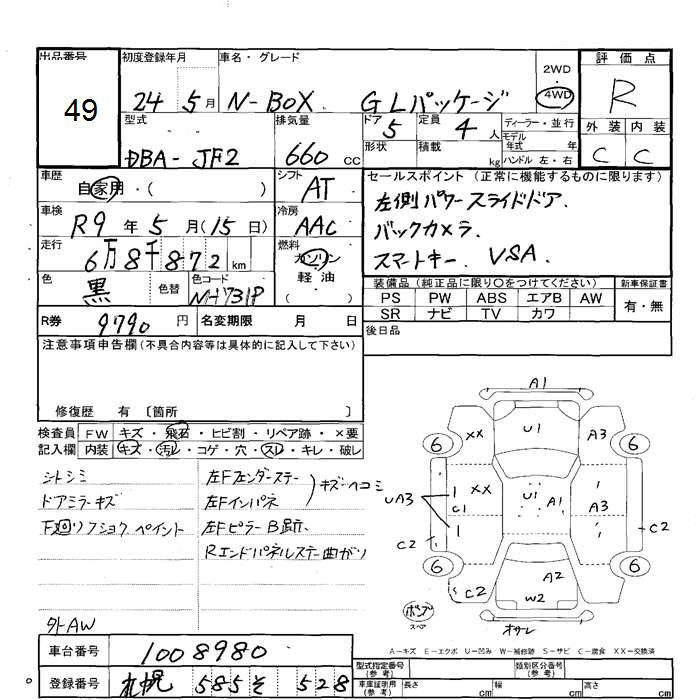 出品番号 初度登録年月 車名・グレード 2WD 評価点
49 24 5月 N-BOX GLパッケージ 4WD R
型式 排気量 ドア 定員 ディーラー・並行 外装 内装
DBA-JF2 660 CC 5 4人 モデル年式 年式 C C
形状 積載 kg ハンドル 左・右
車歴 自家用・( ) シフト AT セールスポイント(正常に機能するものに限ります)
車検 R9年5月(15日) 冷房 AAC 左側パワースライドドア.
走行 6万8千872km 燃料 ガソリン 軽油 ・( ) バックカメラ.
色 黒 色替 色コード NH731P スマートキー. VSA.
装備品(純正品に限り〇をつけてください) 新車保証書
PS PW ABS エアB AW 有・無
SR ナビ TV カワ
R券 9790円 名変期限 月 日
後日品
注意事項申告欄(不具合内容等は具体的に記入して下さい)
修復歴 有 〔箇所 〕
検査員 FW キズ・飛石・ヒビ割・リペア跡・×要
記入欄 内装 キズ・汚レ・コゲ・穴・スレ・キレ・破レ
シトシミ
ドアミラーキズ
F廻リフショク、ペイント
外AW
左Fフェンダーステー
左Fインパネ
キズヘコミ
左FピラーB跡、
Rエンドパネルステー曲がり
A1
XX U1 A3
6 6
UA3 XX U1 A1 A3
C1
C2 C2
6 6
C2 A2 C2
W2
ポンプ
スペア オサレ
A-キズ E-エクボ U-凹み W-補修跡 S-サビ C-腐食 XX-交換済
車台番号 1008980
登録番号 札幌 585 そ 528
型式指定番号(参考) 類別区分番号(参考)
車庫証明(参考) 長さ cm 幅 cm 高さ cm